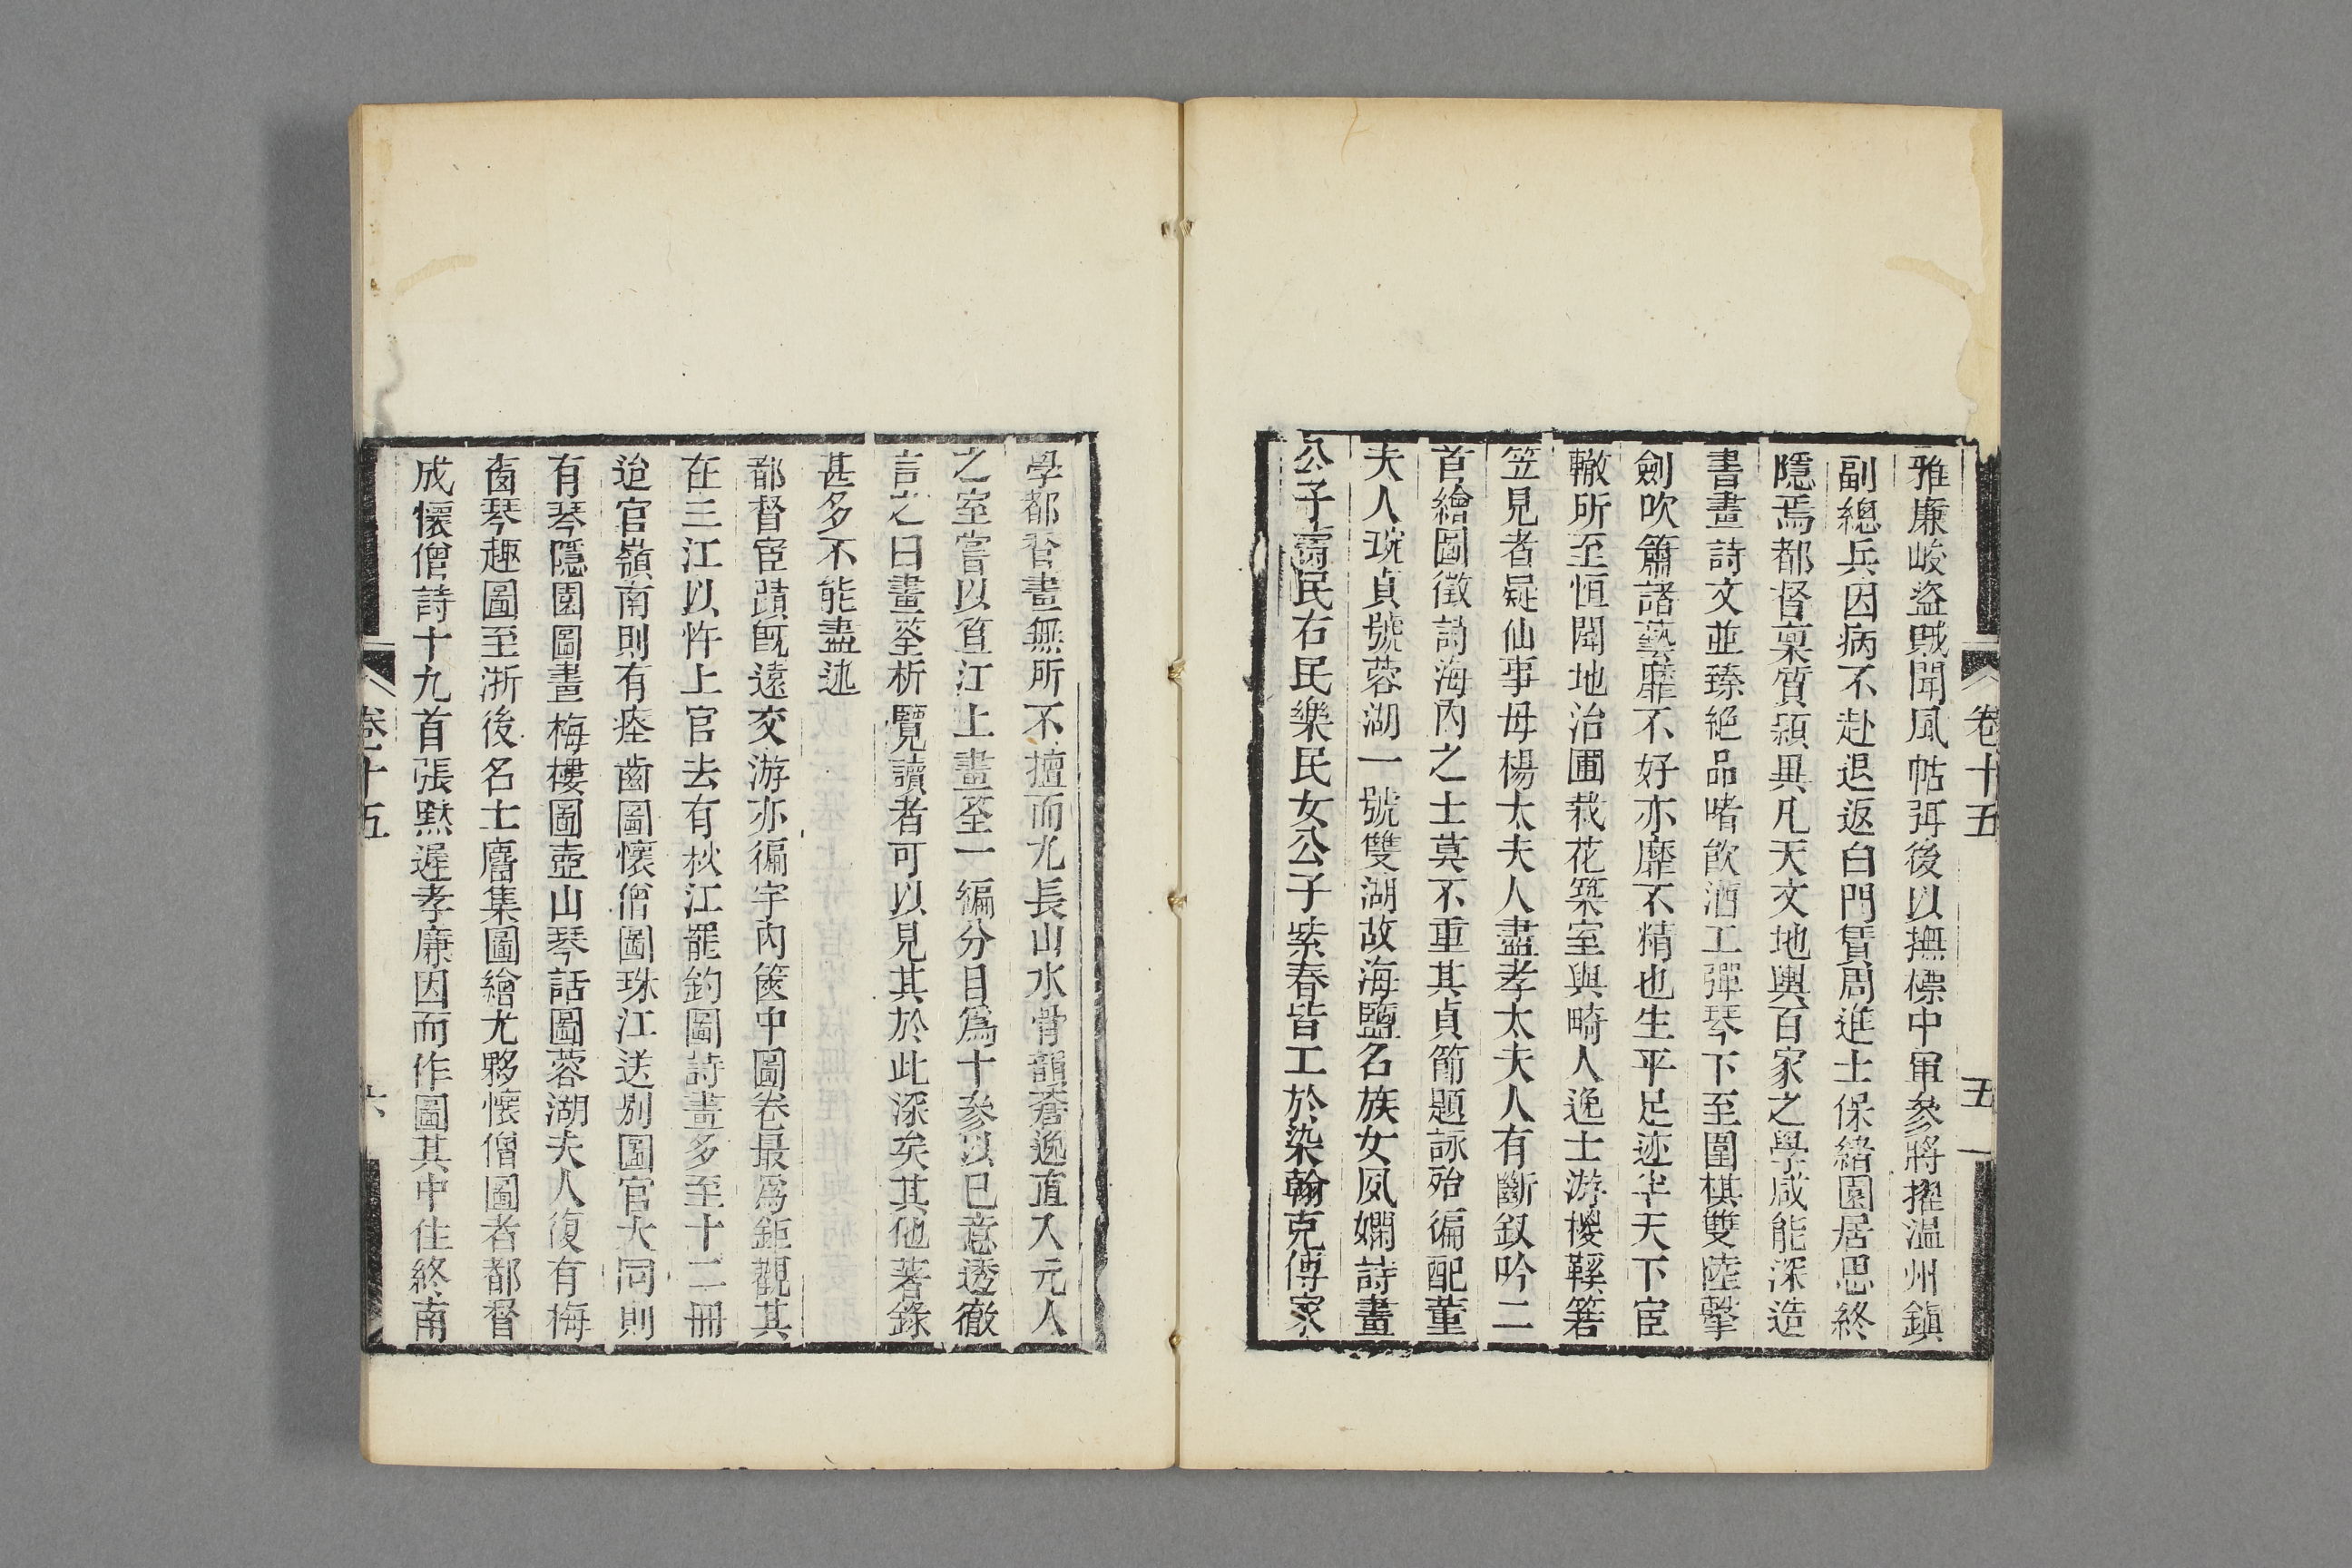 卷十五
五
雅廉峻盜賊聞風帖弭後以撫標中軍參將擢温州鎮
副總兵因病不赴退返白門賃周進士保緒園居思終
隱焉都督稟質穎異凡天文地輿百家之學咸能深造
書畫詩文並臻絕品嗜飲酒工彈琴下至圍棋雙陸擊
劍吹簫諸藝靡不好亦靡不精也生平足迹半天下宦
轍所至恒闢地治圃栽花築室與畸人逸士游椶鞵箬
笠見者疑仙事母楊太夫人盡孝太夫人有斷釵吟二
首繪圖徵詩海內之士莫不重其貞節題詠殆徧配董
夫人琬貞號蓉湖一號雙湖故海鹽名族女夙嫻詩畫
公子壽民右民樂民女公子紫春皆工於染翰克傳家
學都督畫無所不擅而尤長山水骨韻蒼逸直入元人
之室嘗以笪江上畫筌一編分目爲十參以己意透徹
言之曰畫筌析覽讀者可以見其於此深矣其他著錄
甚多不能盡述
都督宦蹟旣遠交游亦徧宇內篋中圖卷最爲鉅觀其
在三江以忤上官去有秋江罷釣圖詩畫多至十二冊
迨官嶺南則有瘞齒圖懷僧圖珠江送別圖官大同則
有琴隱園圖畫梅樓圖壺山琴話圖蓉湖夫人復有梅
窗琴趣圖至浙後名士麕集圖繪尤夥懷僧圖者都督
成懷僧詩十九首張黙遲孝廉因而作圖其中住終南
卷十五
六